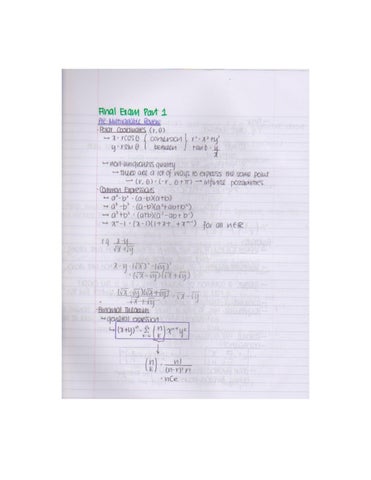 Final Exam Part 1
Pre-Multivariable Review
·Polar Coordinates (r, θ)
→ x = rcosθ { conversion } r² = x² + y²
y = rsinθ { between } tanθ = y/x
→ non-uniqueness quality
→ there are a lot of ways to express the same point
→ (r, θ) = (-r, θ+π) → infinite possibilities
·Common Expressions
→ a²-b² = (a-b)(a+b)
→ a³-b³ = (a-b)(a²+ab+b²)
→ a³+b³ = (a+b)(a²-ab+b²)
→ xⁿ-1 = (x-1)(1+x+...+xⁿ⁻¹) for all n∈ℝ
e.g. x-y / √x+√y
x-y = (√x)² - (√y)²
= (√x-√y)(√x+√y)
= (√x-√y)(√x+√y) / √x+√y = √x-√y
·Binomial Theorem
→ general equation
→ (x+y)ⁿ = Σ (n k) xⁿ⁻ʳ yʳ
(n k) = n! / (n-r)! r!
= nCr